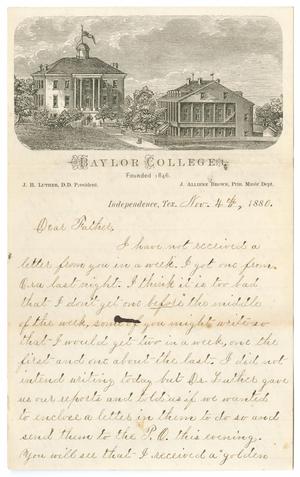 BAYLOR COLLEGE,
Founded 1846.
J. H. LUTHER, D.D. President.
J. ALLEINE BROWN, Prin. Music Dept.
Independence, Tex. Nov. 4th, 1880.
Dear Father,
I have not received a
letter from you in a week. I got one from
Ora last night. I think it is too bad
that I don't get one before the middle
of the week, some of you might write so
that I would get two in a week, one the
first and one about the last. I did not
intend writing today but Dr. Luther gave
us our reports and told us if we wanted
to enclose a letter in them to do so and
send them to the P.O. this evening.
You will see that I received a "golden